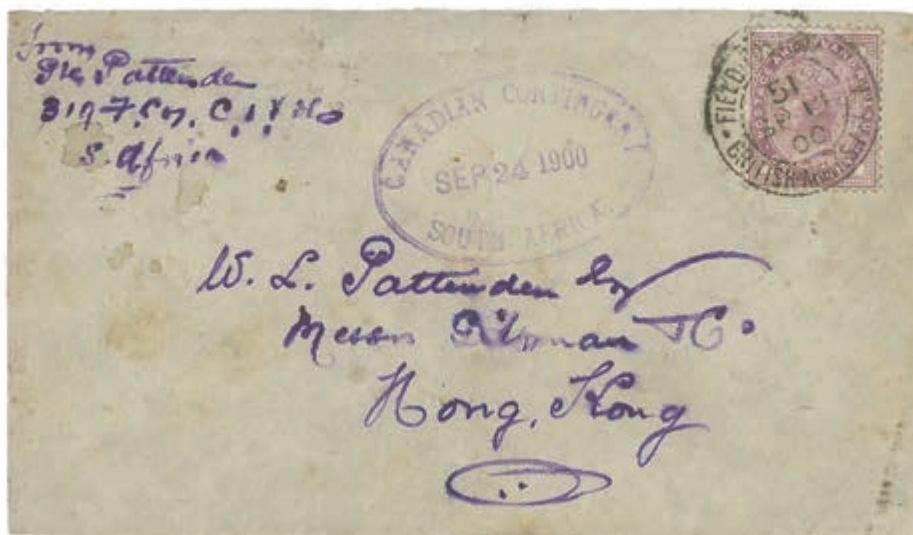 from
Pte Pattenden
S. Africa
CANADIAN CONTINGENT
SEP 24 1900
SOUTH AFRICA.
FIELD
BRITISH ARMY S.
00
W. L. Pattenden Esq
Messrs Gilman & Co
Hong, Kong